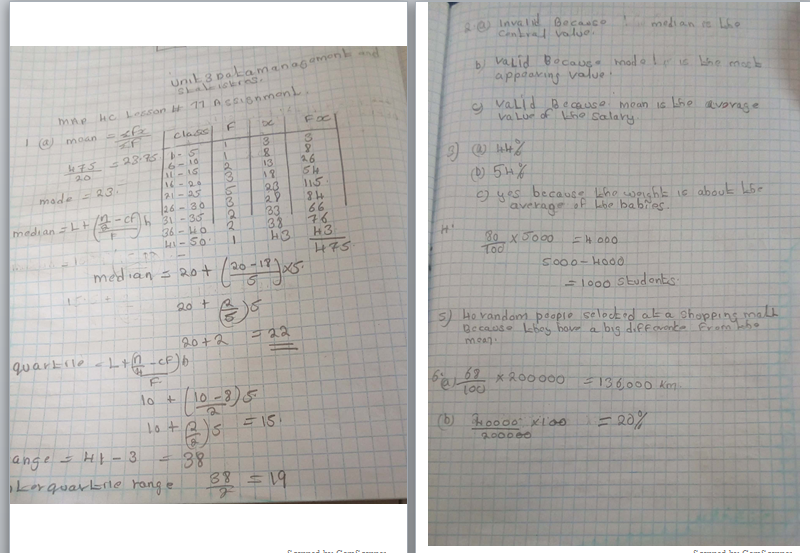 Unit 3 Data management and
Statistics.
MAP 4C Lesson # 11 Assignment.
1 (a) mean = Σfx / Σf
475 / 20 = 23.75
mode = 23
median = L + (n/2 - cF / F) h
Classes F x Fx
1 - 5 1 3 3
6 - 10 1 8 8
11 - 15 2 13 26
16 - 20 3 18 54
21 - 25 5 23 115
26 - 30 3 28 84
31 - 35 2 33 66
36 - 40 2 38 76
41 - 50 1 43 43
475
median = 20 + (20 - 18 / 5) x 5
20 + (2/5) 5
20 + 2 = 22
quartile = L + (n/4 - cF / F) h
10 + (10 - 8 / 2) 5
10 + (2/2) 5 = 15
ange = 41 - 3 = 38
terquartile range 38/2 = 19
2 (a) invalid Because median is the
central value.
b) valid Because mode is the most
appearing value.
c) valid Because mean is the avarage
value of the salary
3) (a) 44%
(b) 54%
c) yes because the weight is about the
average of the babies
4.
80/100 x 5000 = 4000
5000 - 4000
= 1000 students
5) 40 random people selected at a shopping mall
Because they have a big difference from the
mean.
6 a) 68/100 x 200000 = 136,000 km
(b) 40000/200000 x 100 = 20%